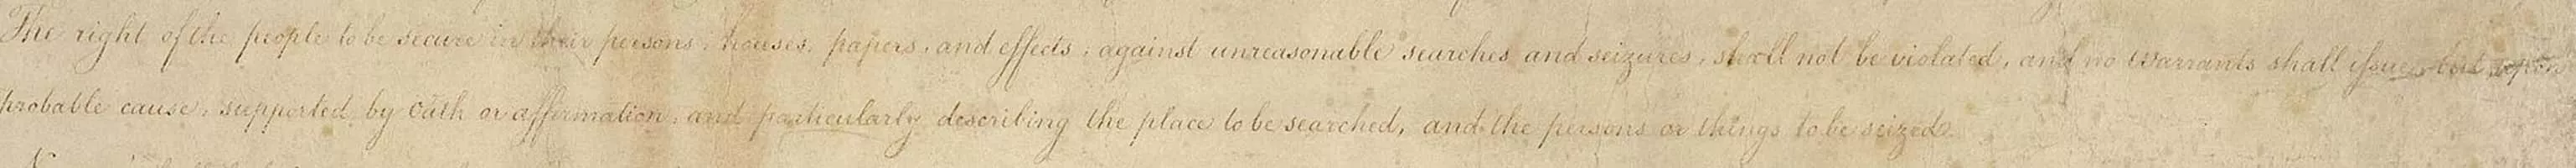 The right of the people to be secure in their persons, houses, papers, and effects, against unreasonable searches and seizures, shall not be violated, and no warrants shall issue, but upon
probable cause, supported by oath or affirmation, and particularly describing the place to be searched, and the persons or things to be seized.